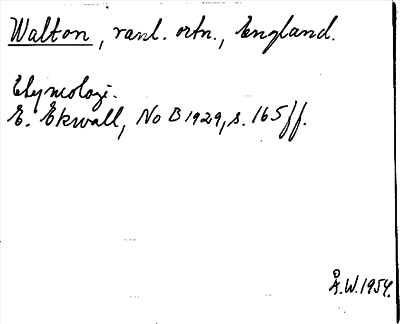 Walton, vanl. ortn., England.
Etymologi.
E. Ekwall, NoB 1929, s. 165 ff.
Å.W. 1954.